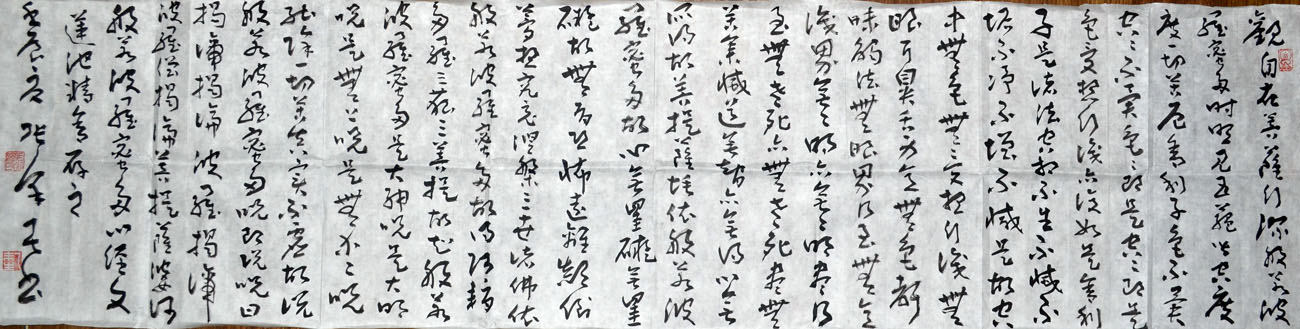 觀自在菩薩行深般若波
羅蜜多時照見五蘊皆空度
度一切苦厄舍利子色不異
空空不異色色即是空空即是
色受想行識亦復如是舍利
子是諸法空相不生不滅不
垢不淨不增不減是故空
中無色無受想行識無
眼耳鼻舌身意無色聲
味觸法無眼界乃至無意
識界無無明亦無無明盡乃
至無老死亦無老死盡無
苦集滅道無智亦無得以無
所得故菩提薩埵依般若波
羅蜜多故心無罣礙無罣
礙故無有恐怖遠離顛倒
夢想究竟涅槃三世諸佛依
般若波羅蜜多故得阿耨
多羅三藐三菩提故知般若
波羅蜜多是大神咒是大明
咒是無上咒是無等等咒
能除一切苦真實不虛故說
般若波羅蜜多咒即說咒曰
揭諦揭諦波羅揭諦
波羅僧揭諦菩提薩婆訶
般若波羅蜜多心經文
蓮池精舍存之